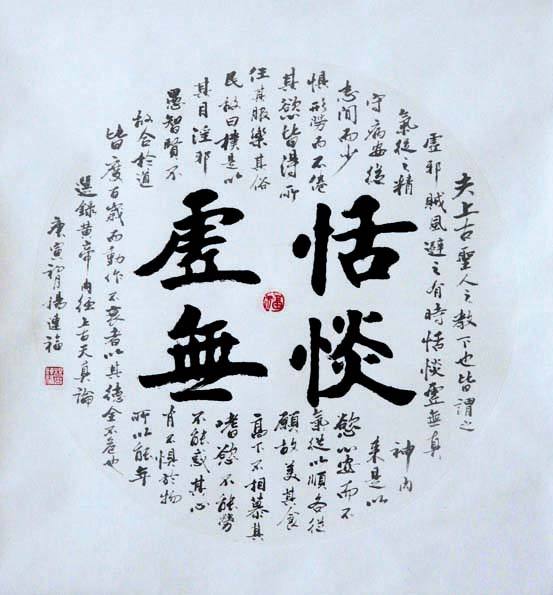 恬惔
虛無
夫上古聖人之教下也皆謂之
虛邪賊風避之有時恬惔虛無真
氣從之精
神內
守病安從
來是以
志閒而少
慾心安而不
懼形勞而不倦
氣從以順各從
其慾皆得所
願故美其食
任其服樂其俗
高下不相慕其
民故曰樸是以
嗜慾不能勞
其目淫邪
不能惑其心
愚智賢不
肖不懼於物
故合於道
所以能年
皆度百歲而動作不衰者以其德全不危也
選錄黃帝內經上古天真論
庚寅楊連福